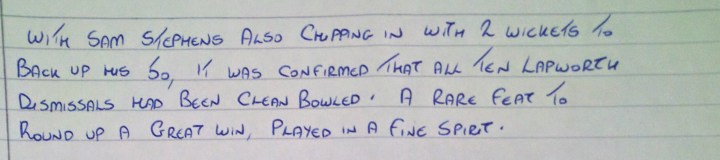 WITH SAM STEPHENS ALSO CHIPPING IN WITH 2 WICKETS TO
BACK UP HIS 50, IT WAS CONFIRMED THAT ALL TEN LAPWORTH
DISMISSALS HAD BEEN CLEAN BOWLED. A RARE FEAT TO
ROUND UP A GREAT WIN, PLAYED IN A FINE SPIRIT.